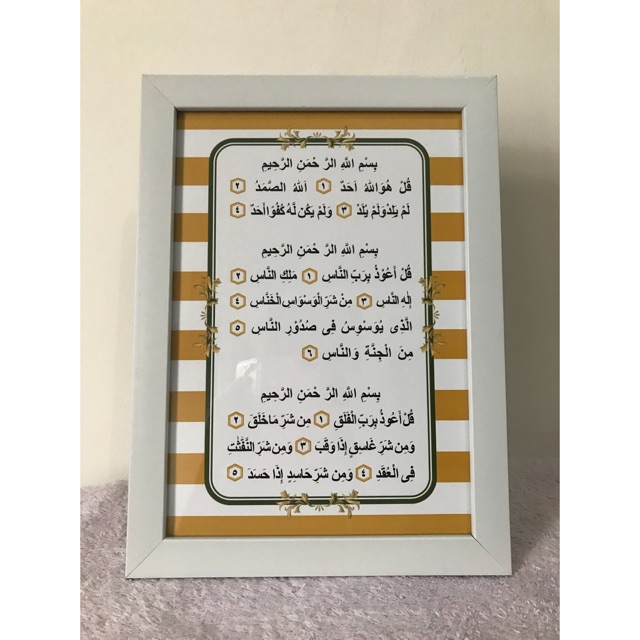 بِسْمِ اللَّهِ الرَّ حْمَنِ الرَّحِيمِ
قُلْ هُوَ اللهُ اَحَدٌ ١ اَللهُ الصَّمَدُ ٢
لَمْ يَلِدْ وَلَمْ يُلَدْ ٣ وَلَمْ يَكُن لَّهُ كُفُوًا أَحَدٌ ٤
بِسْمِ اللَّهِ الرَّ حْمَنِ الرَّحِيمِ
قُلْ أَعُوْذُ بِرَبِّ النَّاسِ ١ مَلِكِ النَّاسِ ٢
اِلٰهِ النَّاسِ ٣ مِنْ شَرِّ الْوَسْوَاسِ الْخَنَّاسِ ٤
الَّذِى يُوَسْوِسُ فِى صُدُوْرِ النَّاسِ ٥
مِنَ الْجِنَّةِ وَالنَّاسِ ٦
بِسْمِ اللَّهِ الرَّ حْمَنِ الرَّحِيمِ
قُلْ أَعُوذُ بِرَبِّ الْفَلَقِ ١ مِن شَرِّ مَا خَلَقَ ٢
وَمِن شَرِّ غَاسِقٍ إِذَا وَقَبَ ٣ وَمِن شَرِّ النَّفّٰثٰتِ
فِى الْعُقَدِ ٤ وَمِن شَرِّ حَاسِدٍ إِذَا حَسَدَ ٥